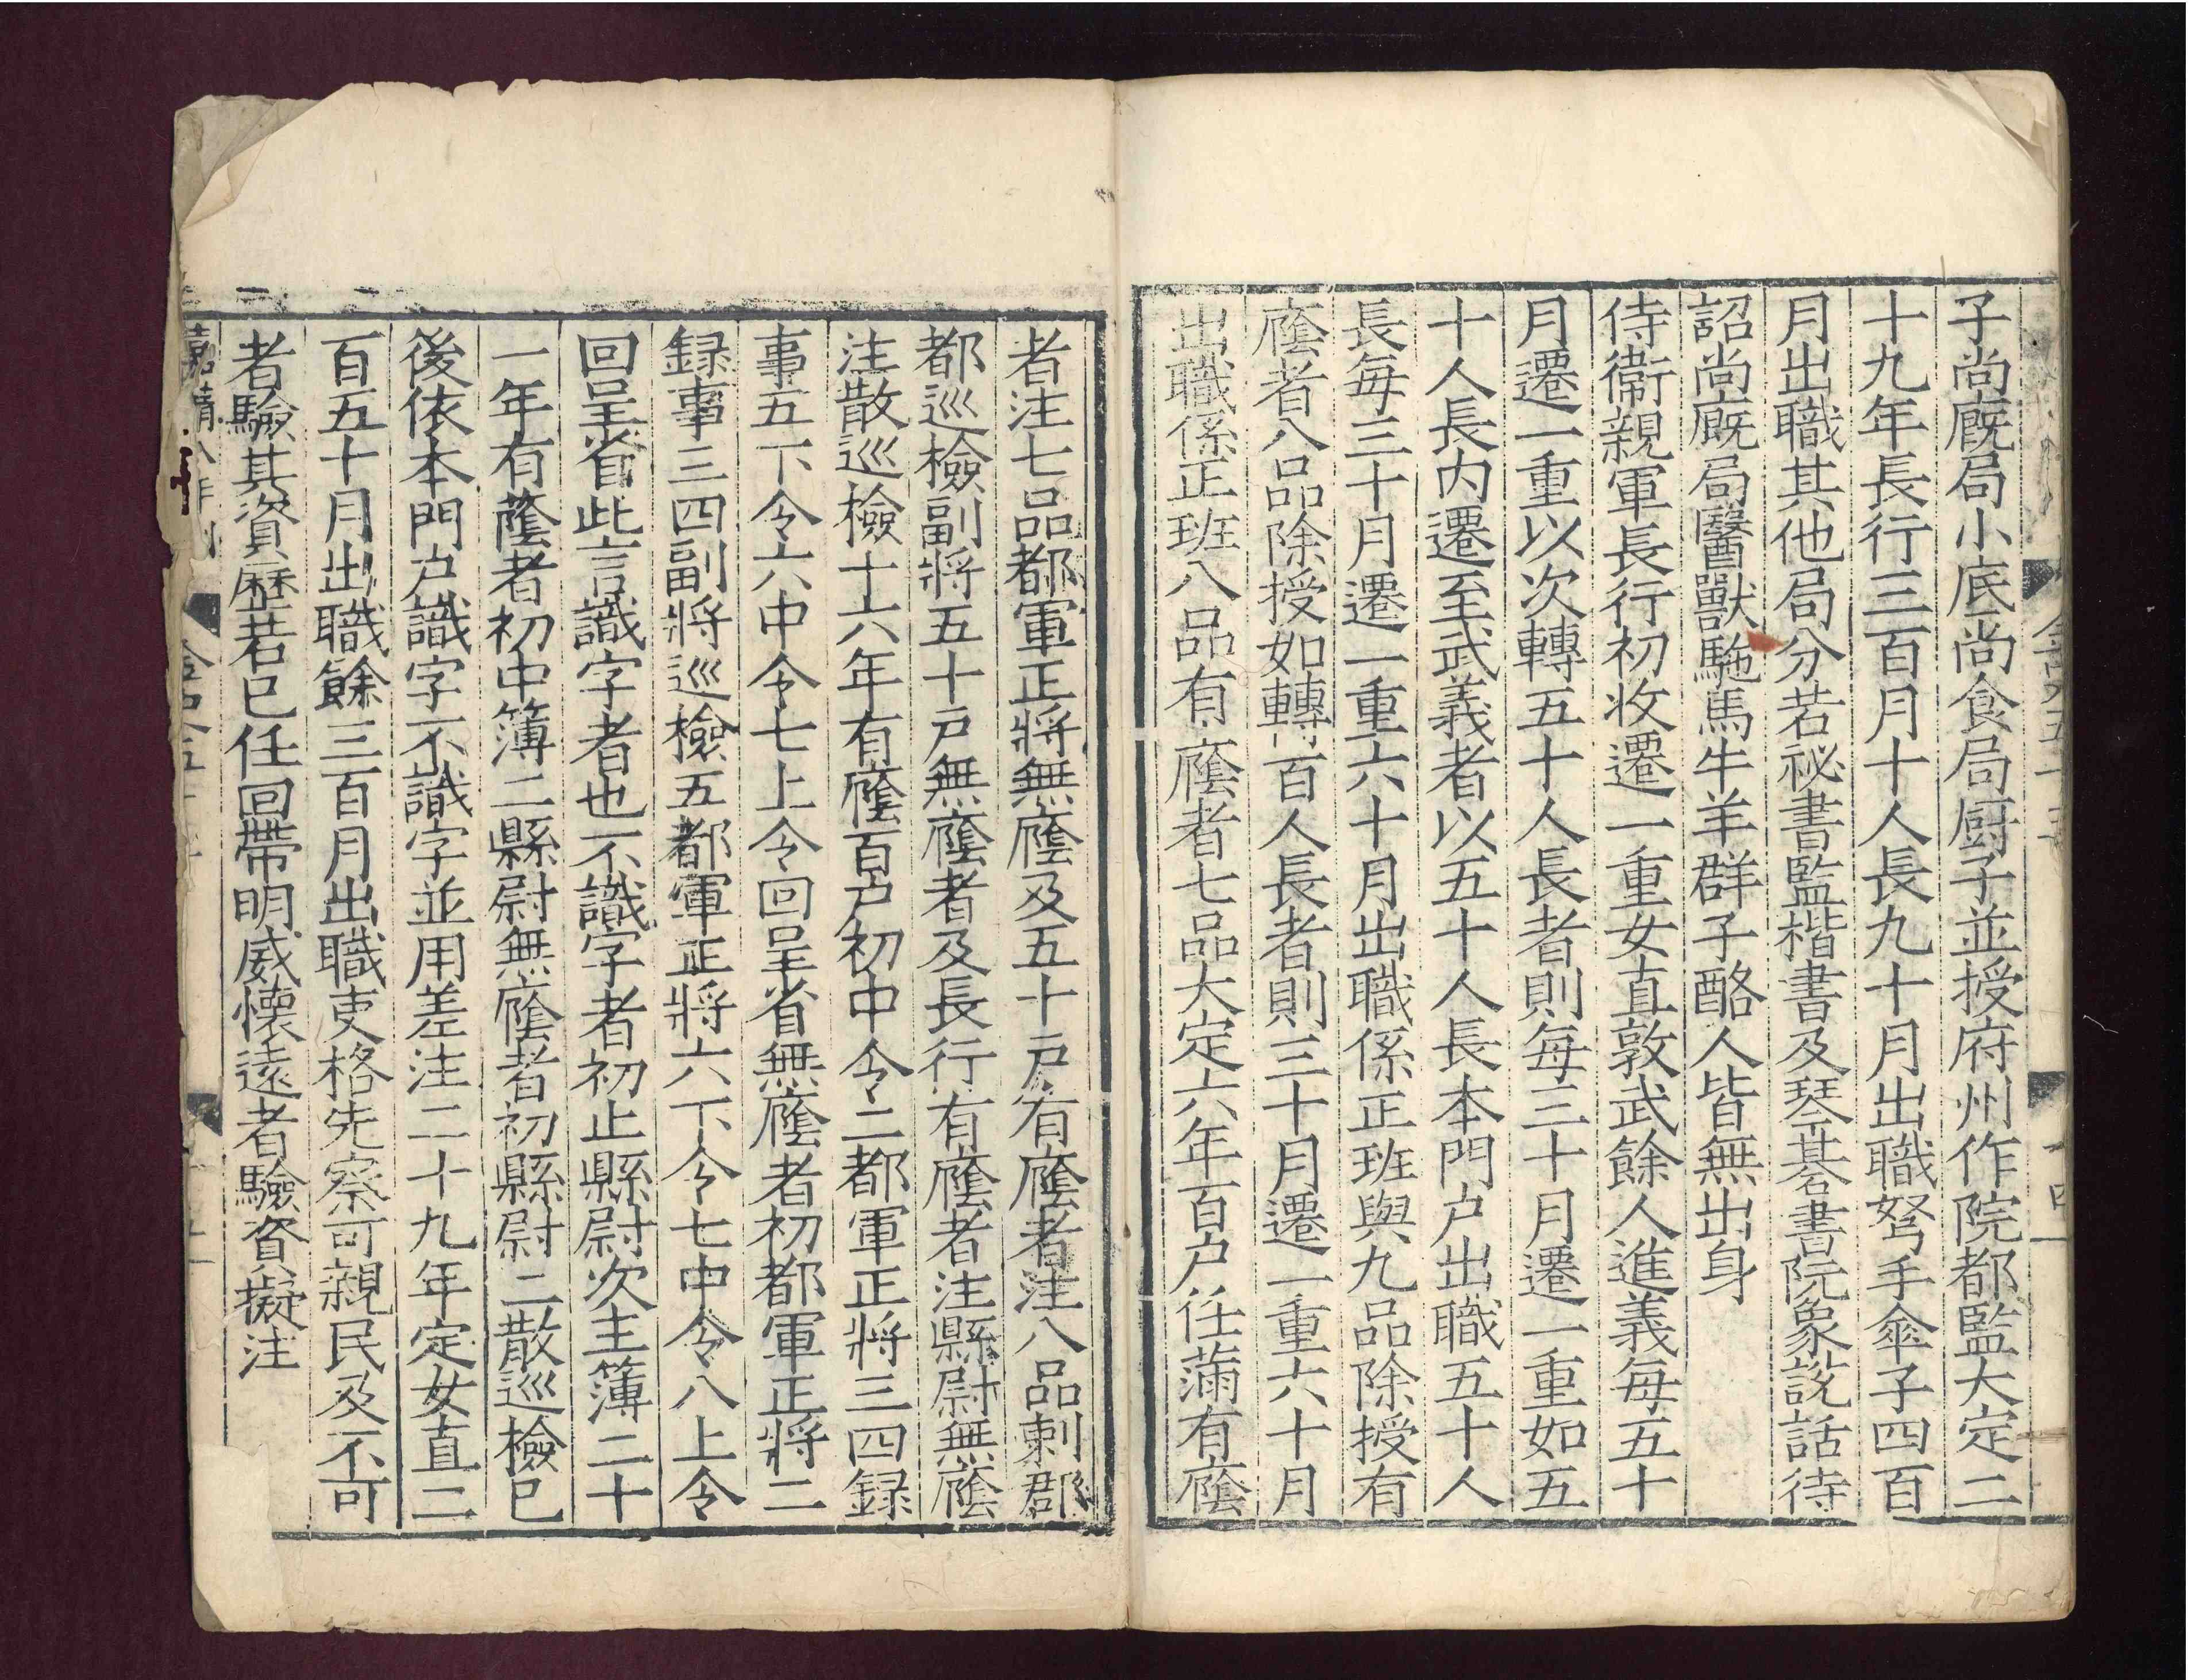 子尚廐局小底尚食局厨子並授府州作院都監大定二
十九年長行三百月十人長九十月出職弩手傘子四百
月出職其他局分若祕書監楷書及琴棊書阮象說話待
詔尚廐局醫獸駞馬牛羊群子酪人皆無出身
侍衛親軍長行初收遷一重女直敦武餘人進義每五十
月遷一重以次轉五十人長者則每三十月遷一重如五
十人長内遷至武義者以五十人長本門户出職五十人
長每三十月遷一重六十月出職係正班與九品除授有
廕者八品除授如轉百人長者則三十月遷一重六十月
出職係正班八品有廕者七品大定六年百户任滿有廕
者注七品都軍正將無廕及五十户有廕者注八品刺郡
都巡檢副將五十户無廕者及長行有廕者注縣尉無廕
注散巡檢十六年有廕百户初中令二都軍正將三四録
事五下令六中令七上令回呈省無廕者初都軍正將二
録事三四副將巡檢五都軍正將六下令七中令八上令
回呈省此言識字者也不識字者初止縣尉次主簿二十
一年有蔭者初中簿二縣尉無廕者初縣尉二散巡檢已
後依本門户識字不識字並用差注二十九年定女直二
百五十月出職餘三百月出職吏格先察可親民及不可
者驗其資歷若已任回帶明威懷遠者驗資擬注